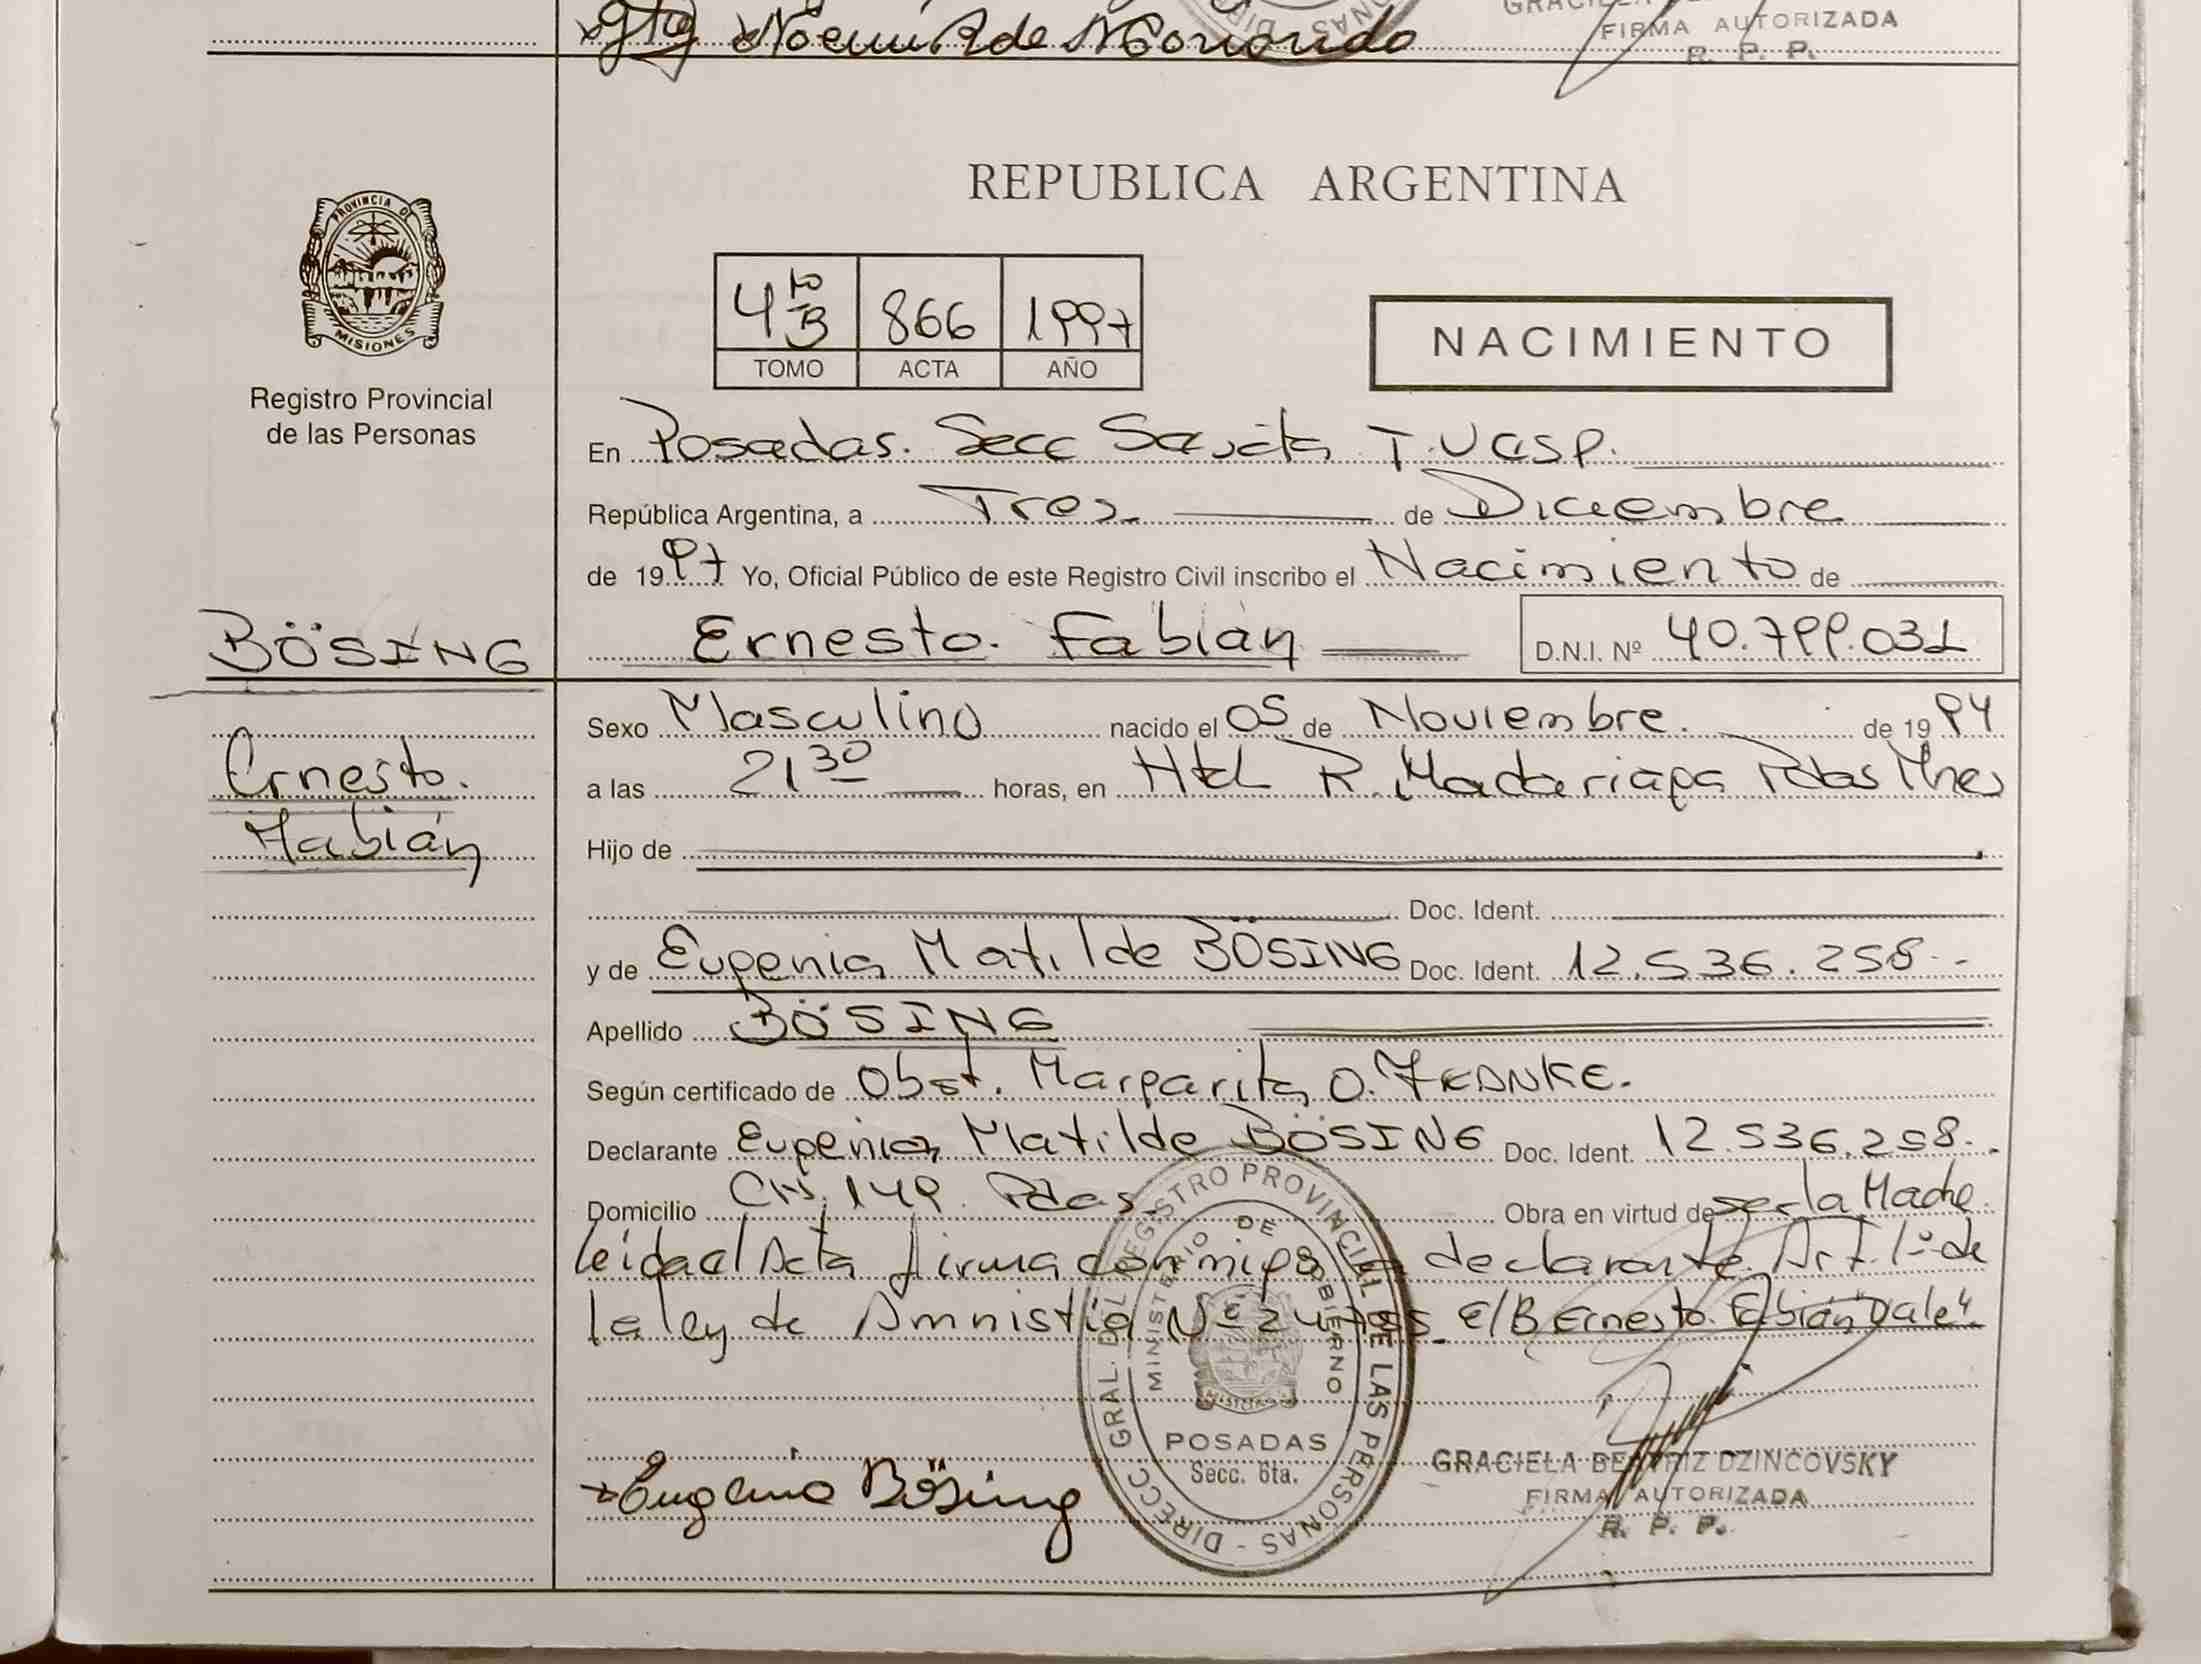 Noemi R de
GRACIELA
FIRMA AUTORIZADA
R. P. P.
REPUBLICA ARGENTINA
PROVINCIA DE
MISIONES
Registro Provincial
de las Personas
4to B 866 1997
TOMO ACTA AÑO
NACIMIENTO
En Posadas. Secc Sexta T.V a S P.
República Argentina, a Tres de Diciembre
de 1997 Yo, Oficial Público de este Registro Civil inscribo el Nacimiento de
BÖSING
Ernesto. Fabián
D.N.I. Nº 40.799.031
Ernesto.
Fabián
Sexo Masculino nacido el 05 de Noviembre. de 1994
a las 21 30 horas, en Htal R. Madariaga Pdas Mnes
Hijo de
Doc. Ident.
y de Eugenia Matilde BÖSING Doc. Ident. 12.536.258.-
Apellido BÖSING
Según certificado de Obst. Margarita O.
Declarante Eugenia Matilde BÖSING Doc. Ident. 12.536.258.-
Domicilio CH. 149 Pdas. Obra en virtud de ser la Madre.
leída el Acta firma conmigo declarante Art. 1º de
la ley de Amnistía Nº E/B Ernesto. Fabián "Vale".
DIRECC. GRAL. DEL REGISTRO PROVINCIAL DE LAS PERSONAS -
MINISTERIO DE GOBIERNO
MISIONES
POSADAS
Secc. 6ta.
Eugenia Bösing
GRACIELA BEATRIZ DZINCOVSKY
FIRMA AUTORIZADA
R. P. P.